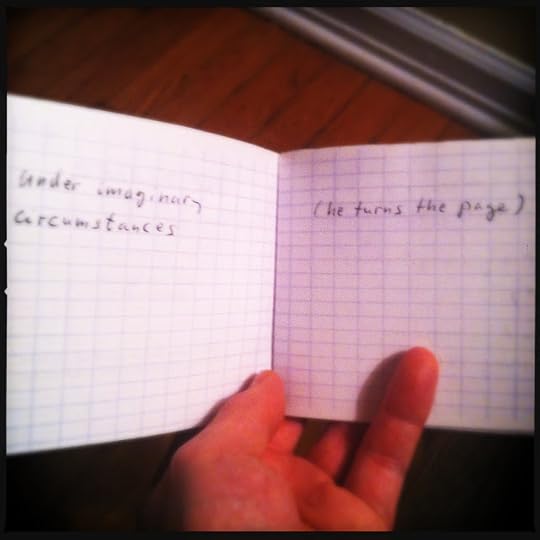 under imaginary
circumstances
(he turns the page)